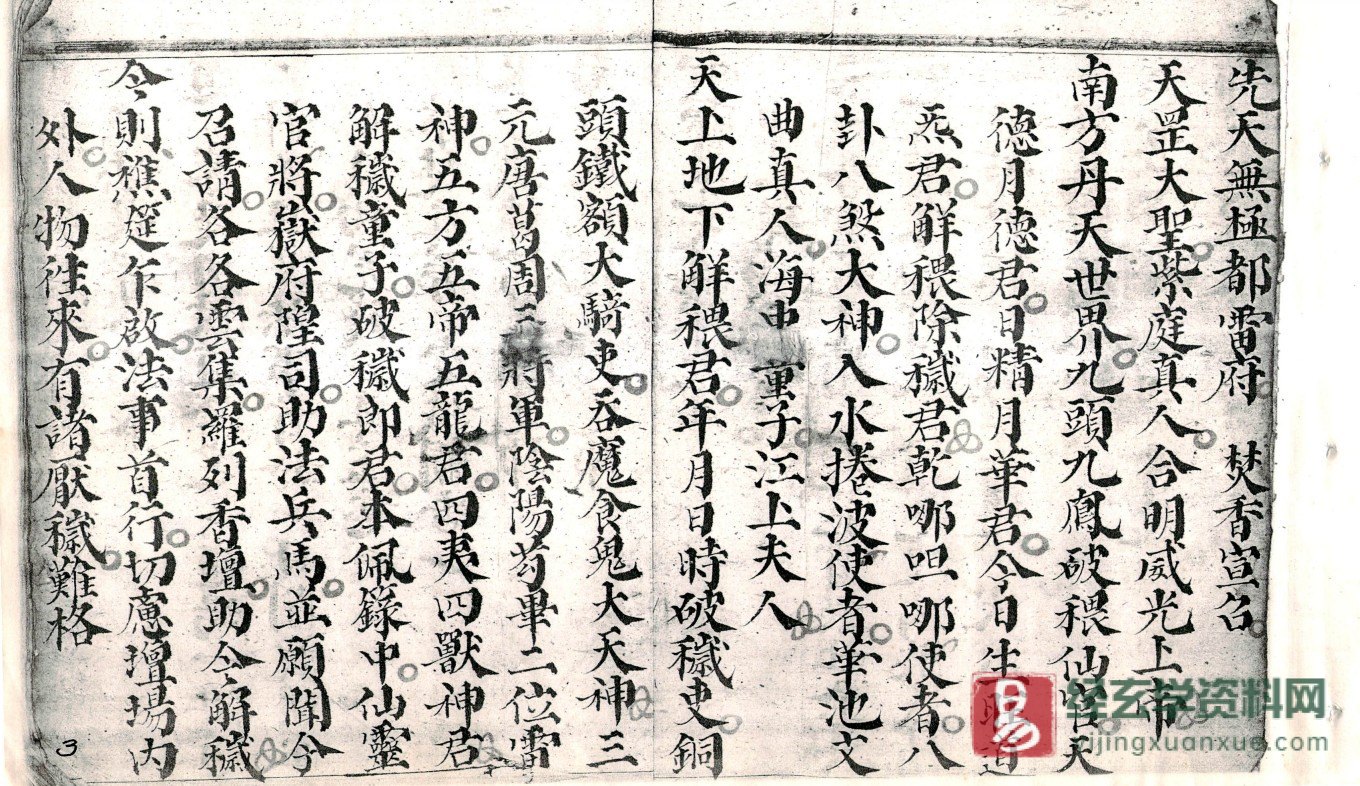 先天無極都雷府。 焚香宣召。
天罡大聖。紫庭真人。合明威光上帝
南方丹天世界。九頭九鳳破穢仙官。天
德月德君。日精月華君。今日生 道
炁君。解穢除穢君。乾哪呾哪使者。八
卦八煞大神。入水捲波使者。華池文
曲真人。海中童子。江上夫人
天上地下解穢君。年月日時破穢吏。銅
頭鐵額大騎吏。吞魔食鬼大天神。三
元唐葛周三將軍。陰陽芶畢二位雷
神。五方五帝五龍君。四夷四獸神君。
解穢童子。破穢郎君。本佩籙中仙靈
官將。嶽府隍司。助法兵馬。並願聞今
召請。各各雲集。羅列香壇。助令解穢
今則醮筵乍啟。法事首行。切慮壇場內
外。人物往來。有諸厭穢。難格
3
易
经玄学资料网
yijingxuanxue.com